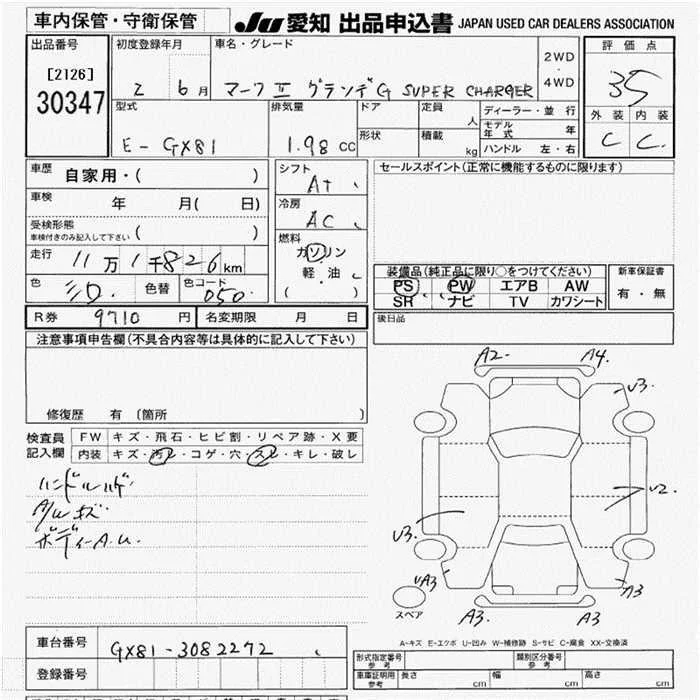 車内保管・守衛保管
JU 愛知 出品申込書 JAPAN USED CAR DEALERS ASSOCIATION
出品番号
[2126]
30347
初度登録年月
2 6月
車名・グレード
マークⅡ グランデG SUPER CHARGER
2WD
・
4WD
評価点
35
外装 内装
C C
型式
E-GX81
排気量
1.98 CC
ドア
形状
定員 人
積載 kg
ディーラー・並 行
モデル年式 年
ハンドル 左・右
車歴 自家用・( )
車検 年 月( 日)
受検形態
車検付きのみ記入して下さい ( )
走行 11万1千826km
色 シロ 色替 色コード 050
シフト
At
冷房
AC
燃料
ガソリン
軽・油
( )
セールスポイント(正常に機能するものに限ります)
装備品(純正品に限り○をつけてください)
PS PW エアB AW
SR ナビ TV カワシート
新車保証書
有・無
R券 9710 円 名変期限 月 日
後日品
注意事項申告欄(不具合内容等は具体的に記入して下さい)
修復歴 有 〔箇所 〕
検査員
記入欄
FW キズ・飛石・ヒビ割・リペア跡・X要
内装 キズ・汚レ・コゲ・穴・スレ・キレ・破レ
ハンドルハゲ
ボディーA.U.
A2
A4
U3
U2
U3
UA3
A3
A3
A3
スペア
A-キズ E-エクボ U-凹み W-補修跡 S-サビ C-腐食 XX-交換済
車台番号 GX81-3082272
登録番号
形式指定番号
参考
類別区分番号
参考
車庫証明用
参考
長さ cm 幅 cm 高さ cm